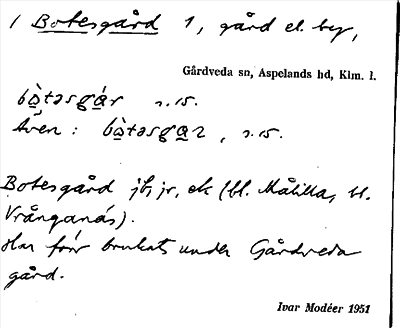 / Botesgård 1, gård el. by,
Gårdveda sn, Aspelands hd, Klm. l.
bò̲təsgá̲r r.is.
Även : bò̲təsga̲r, r.is.
Botesgård jfr, ek (bl. Målilla, bl.
Vrånganäs).
Har förr brukats under Gårdveda
gård.
Ivar Modéer 1951